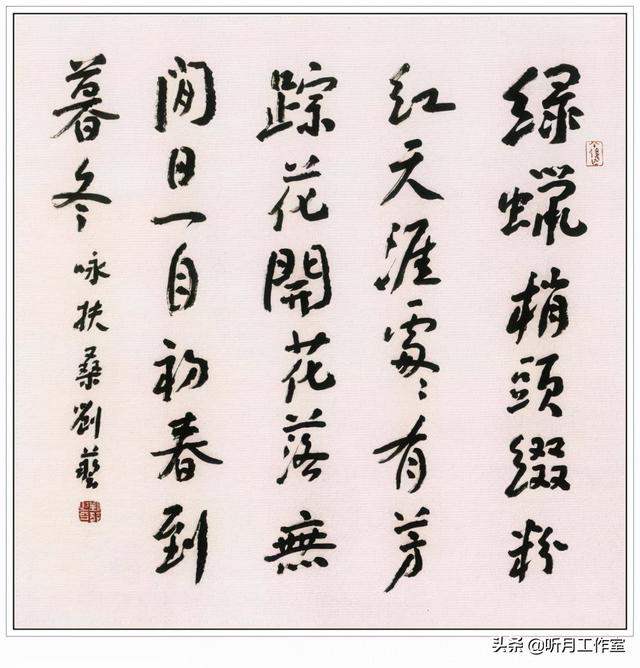 緑蠟梢頭綴粉
红天涯處〻有芳
踪花開花落無
閒日一自初春到
暮冬 咏扶桑劉藝
头条 @听月工作室